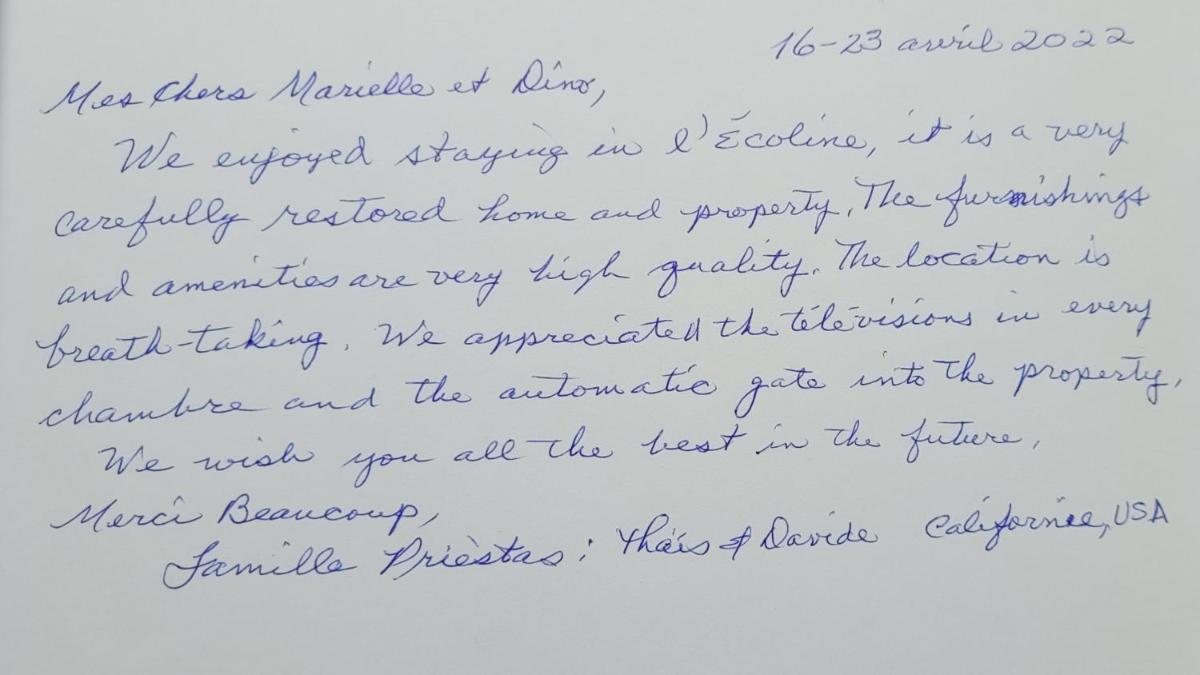 16-23 avril 2022
Mes Chers Marielle et Dino,
We enjoyed staying in l'Écoline, it is a very
carefully restored home and property. The furnishings
and amenities are very high quality. The location is
breath-taking. We appreciated the télévisions in every
chambre and the automatic gate into the property.
We wish you all the best in the future,
Merci Beaucoup,
Famille Priestas: Thaïs & Davide Californie, USA